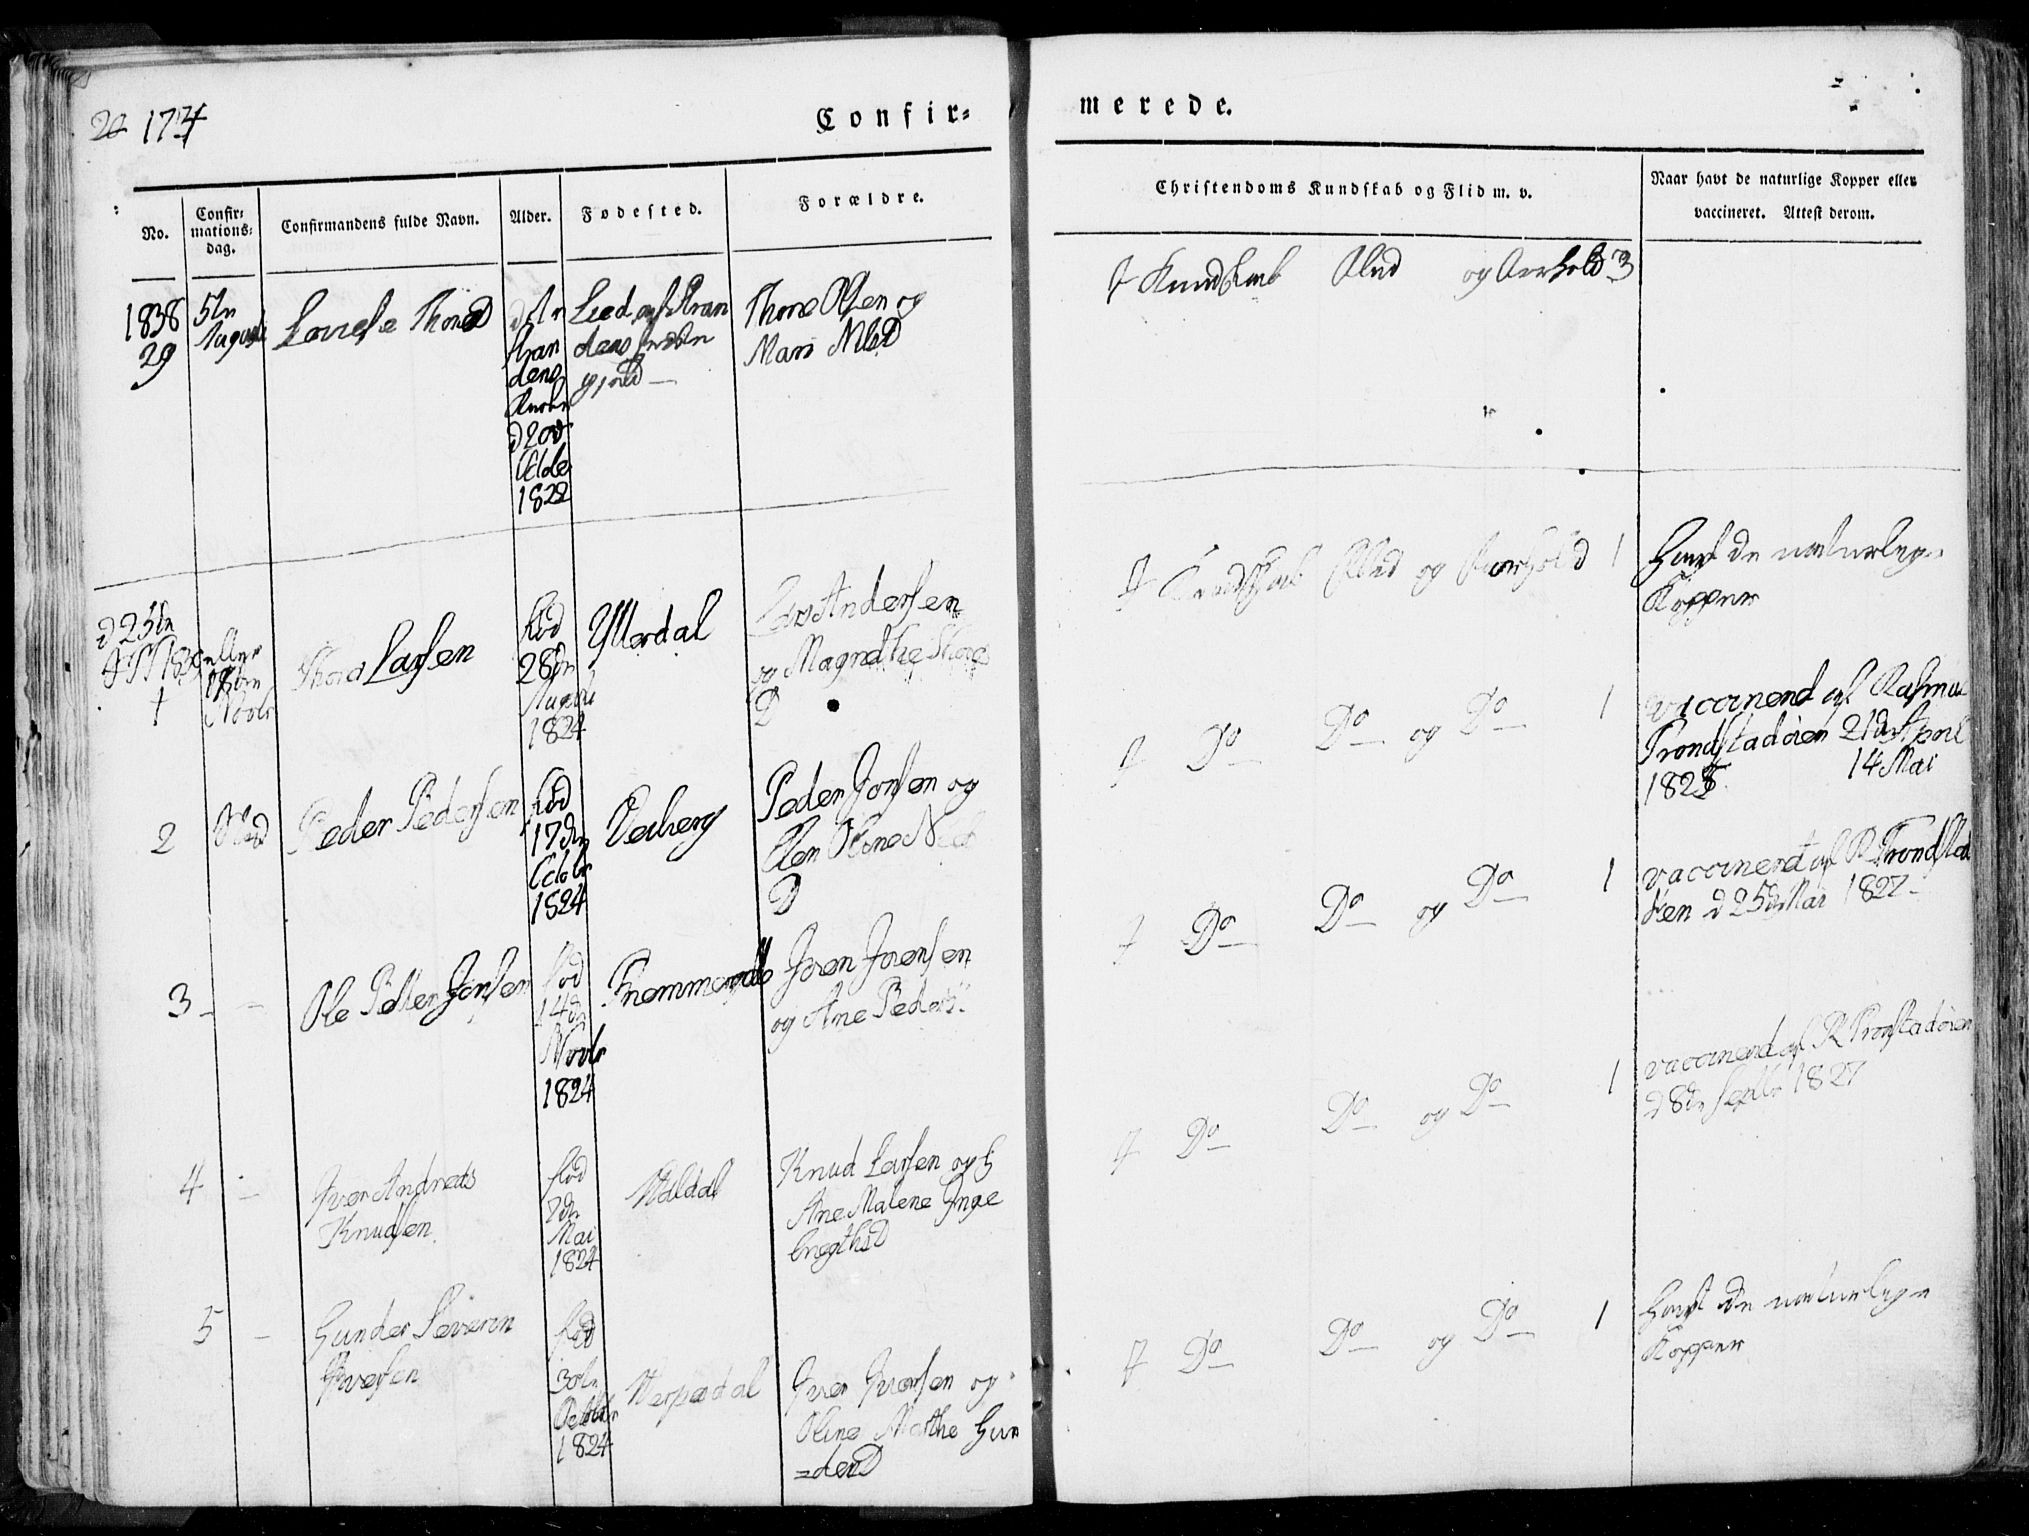 174
Confir=
merede.
No.
Confir=
mations=
dag.
Confirmandens fulde Navn.
Alder.
Fødested.
Forældre.
Christendoms Kundskab og Flid m. v.
Naar havt de naturlige Kopper eller
vaccineret. Attest derom.
1838
29
5te
August
Lovise Thored
1822
Thore Olsen og
Mari
Kundskab Flid og Forhold 3
1
Thore Larsen
Fød
28de
1824
Ytterdal
Lars Andersen
og Magrethe
D
Kundskab Flid og Forhold 1
Havt de naturlige
Kopper
2
Peder Pedersen
Fød
17de
Octbr
1824
Overberg
Peder Jonsen og
Elen Oline
D
Do Do og Do 1
vaccinered af Rasmus
Trondstadøien 21de April
14 Mai
3
Ole Petter Jonsen
Fød
14de
Novbr
1824
Fremmerdal
Joen Joensen
og Ane Peders
Do Do og Do 1
vaccineret af R Trondstad
øien d 25de Mai 1827
4
Iver Andreas
Knudsen
fød
Mai
1824
Valdal
Knud Larsen og
Ane Malene Inge
bregthsD
Do Do og Do 1
vaccinered af R Tronstadøien
d 8de Septbr 1827
5
Gunder Severin
Iversen
fød
30te
Octbr
1824
Verpedal
Iver Iversen og
Oline Marthe Gun
=derD
Do Do og Do 1
Havt de naturlige
Kopper